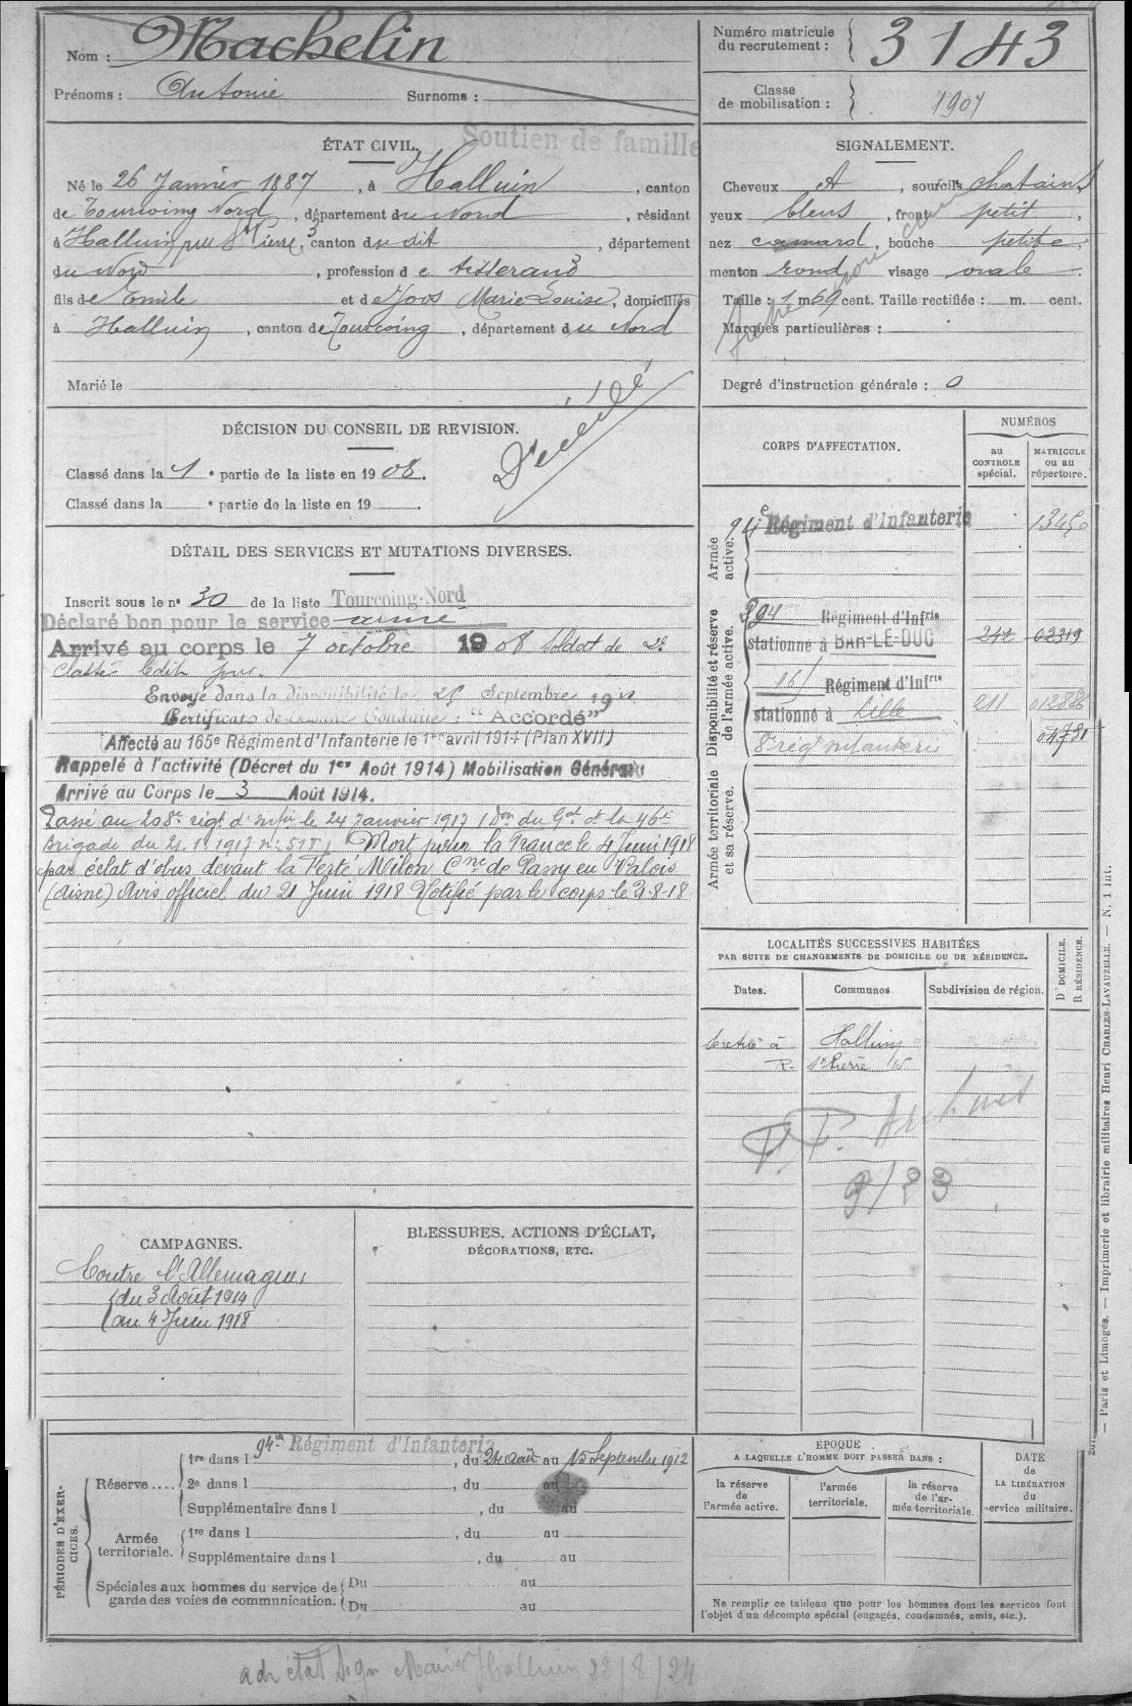 Nom : Machelin
Prénoms : Antonie Surnoms :
Numéro matricule
du recrutement : 3143
Classe
de mobilisation : 1907
Soutien de famille
ÉTAT CIVIL.
Né le 26 Janvier 1887, à Halluin, canton
de Tourcoing Nord, département du Nord, résidant
à Halluin, rue St Pierre, 3 canton du dit, département
du Nord, profession de tisserand
fils de Emile et de Joos Marie Louise, domiciliés
à Halluin, canton de Tourcoing, département du Nord
Marié le
SIGNALEMENT.
Cheveux, sourcils chatains
yeux bleus, front petit,
nez camard, bouche petite,
menton rond visage ovale.
Taille : 1 m 59 cent. Taille rectifiée : m. cent.
Marques particulières :
Degré d'instruction générale : 0
DÉCISION DU CONSEIL DE REVISION.
Classé dans la 1e partie de la liste en 1908.
Classé dans la e partie de la liste en 19
Décédé
DÉTAIL DES SERVICES ET MUTATIONS DIVERSES.
Inscrit sous le no 30 de la liste Tourcoing-Nord
Déclaré bon pour le service armé
Arrivé au corps le 7 octobre 1908 Soldat de 2e
Classe ledit jour.
Envoyé dans la disponibilité le 25 Septembre 1910
Certificat de Bonne Conduite : "Accordé"
Affecté au 165e Régiment d'Infanterie le 1er avril 1914 (Plan XVII)
Rappelé à l'activité (Décret du 1er Août 1914) Mobilisation Générale
Arrivé au Corps le 3 Août 1914.
Passé au 208e régt d'Infie le 24 Janvier 1917 (Don du Gal Ct la 46e
Brigade du 21.1.1917 no 515) Mort pour la France le 4 Juin 1918
par éclat d'obus devant la Ferté Milon Cne de Passy en Valois
(Aisne) Avis officiel du 21 Juin 1918 Notifié par le corps le 9-8-18
CORPS D'AFFECTATION.
NUMÉROS
au
CONTROLE
spécial.
MATRICULE
ou au
répertoire.
Armée
active.
94e Régiment d'Infanterie 13450
Disponibilité et réserve
de l'armée active.
294 Régiment d'Infrie
stationné à BAR-LE-DUC 242 02319
165 Régiment d'Infrie
stationné à Lille 211 012886
8e régt infanterie 04731
Armée territoriale
et sa réserve.
LOCALITÉS SUCCESSIVES HABITÉES
PAR SUITE DE CHANGEMENTS DE DOMICILE OU DE RÉSIDENCE.
Dates. Communes Subdivision de région.
D DOMICILE.
R RÉSIDENCE.
Halluin
R. St Pierre 15
CAMPAGNES.
Contre l'Allemagne
du 3 Août 1914
au 4 Juin 1918
BLESSURES, ACTIONS D'ÉCLAT,
DÉCORATIONS, ETC.
PÉRIODES D'EXERCICES.
94e Régiment d'Infanterie
Réserve.... 1re dans l, du 24 août au 15 Septembre 1912
2e dans l, du au
Supplémentaire dans l, du au
Armée
territoriale. 1re dans l, du au
Supplémentaire dans l, du au
Spéciales aux hommes du service de
garde des voies de communication. Du au
Du au
ÉPOQUE
A LAQUELLE L'HOMME DOIT PASSER DANS :
la réserve
de
l'armée active.
l'armée
territoriale.
la réserve
de l'armée territoriale.
DATE
de
LA LIBÉRATION
du
service militaire.
Ne remplir ce tableau que pour les hommes dont les services font
l'objet d'un décompte spécial (engagés, condamnés, omis, etc.).
— Paris et Limoges. — Imprimerie et librairie militaires Henri CHARLES-LAVAUZELLE. — N. 1 int.
Halluin 22/8/24